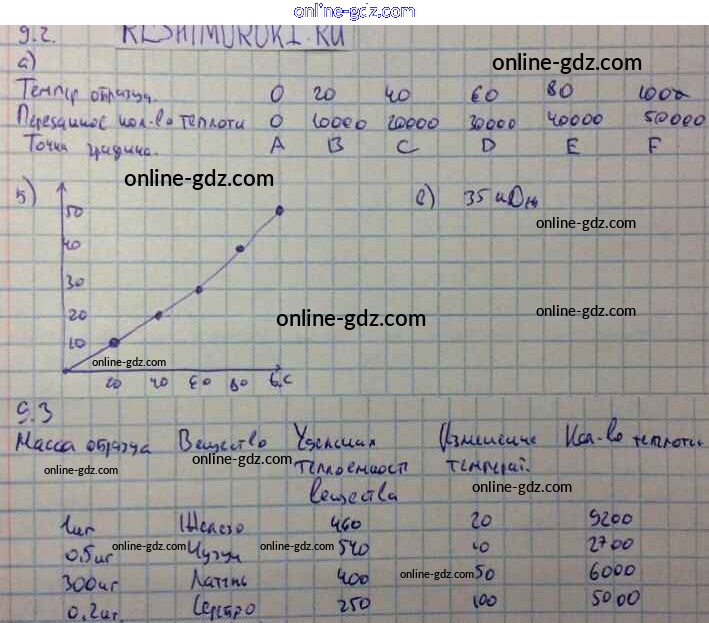 online-gdz.com
9.2. RESHIMUROKI.RU
а) online-gdz.com
Темпер образца. 0 20 40 60 80 100
Переданное кол-во теплоты 0 10000 20000 30000 40000 50000
Точка графика. A B C D E F
online-gdz.com
б) 50 с) 35 кДж
online-gdz.com
40
30
online-gdz.com
20 online-gdz.com
10
online-gdz.com
20 40 60 80 t,C
9.3
Масса образца Вещество Удельная Изменение Кол-во теплоты
online-gdz.com online-gdz.com теплоемкост температ.
вещества online-gdz.com
1кг Железо 460 20 9200
0.5кг online-gdz.com Чугун online-gdz.com 540 10 2700
300кг Латунь 400 online-gdz.com 50 6000
0,2кг. Серебро 250 100 5000